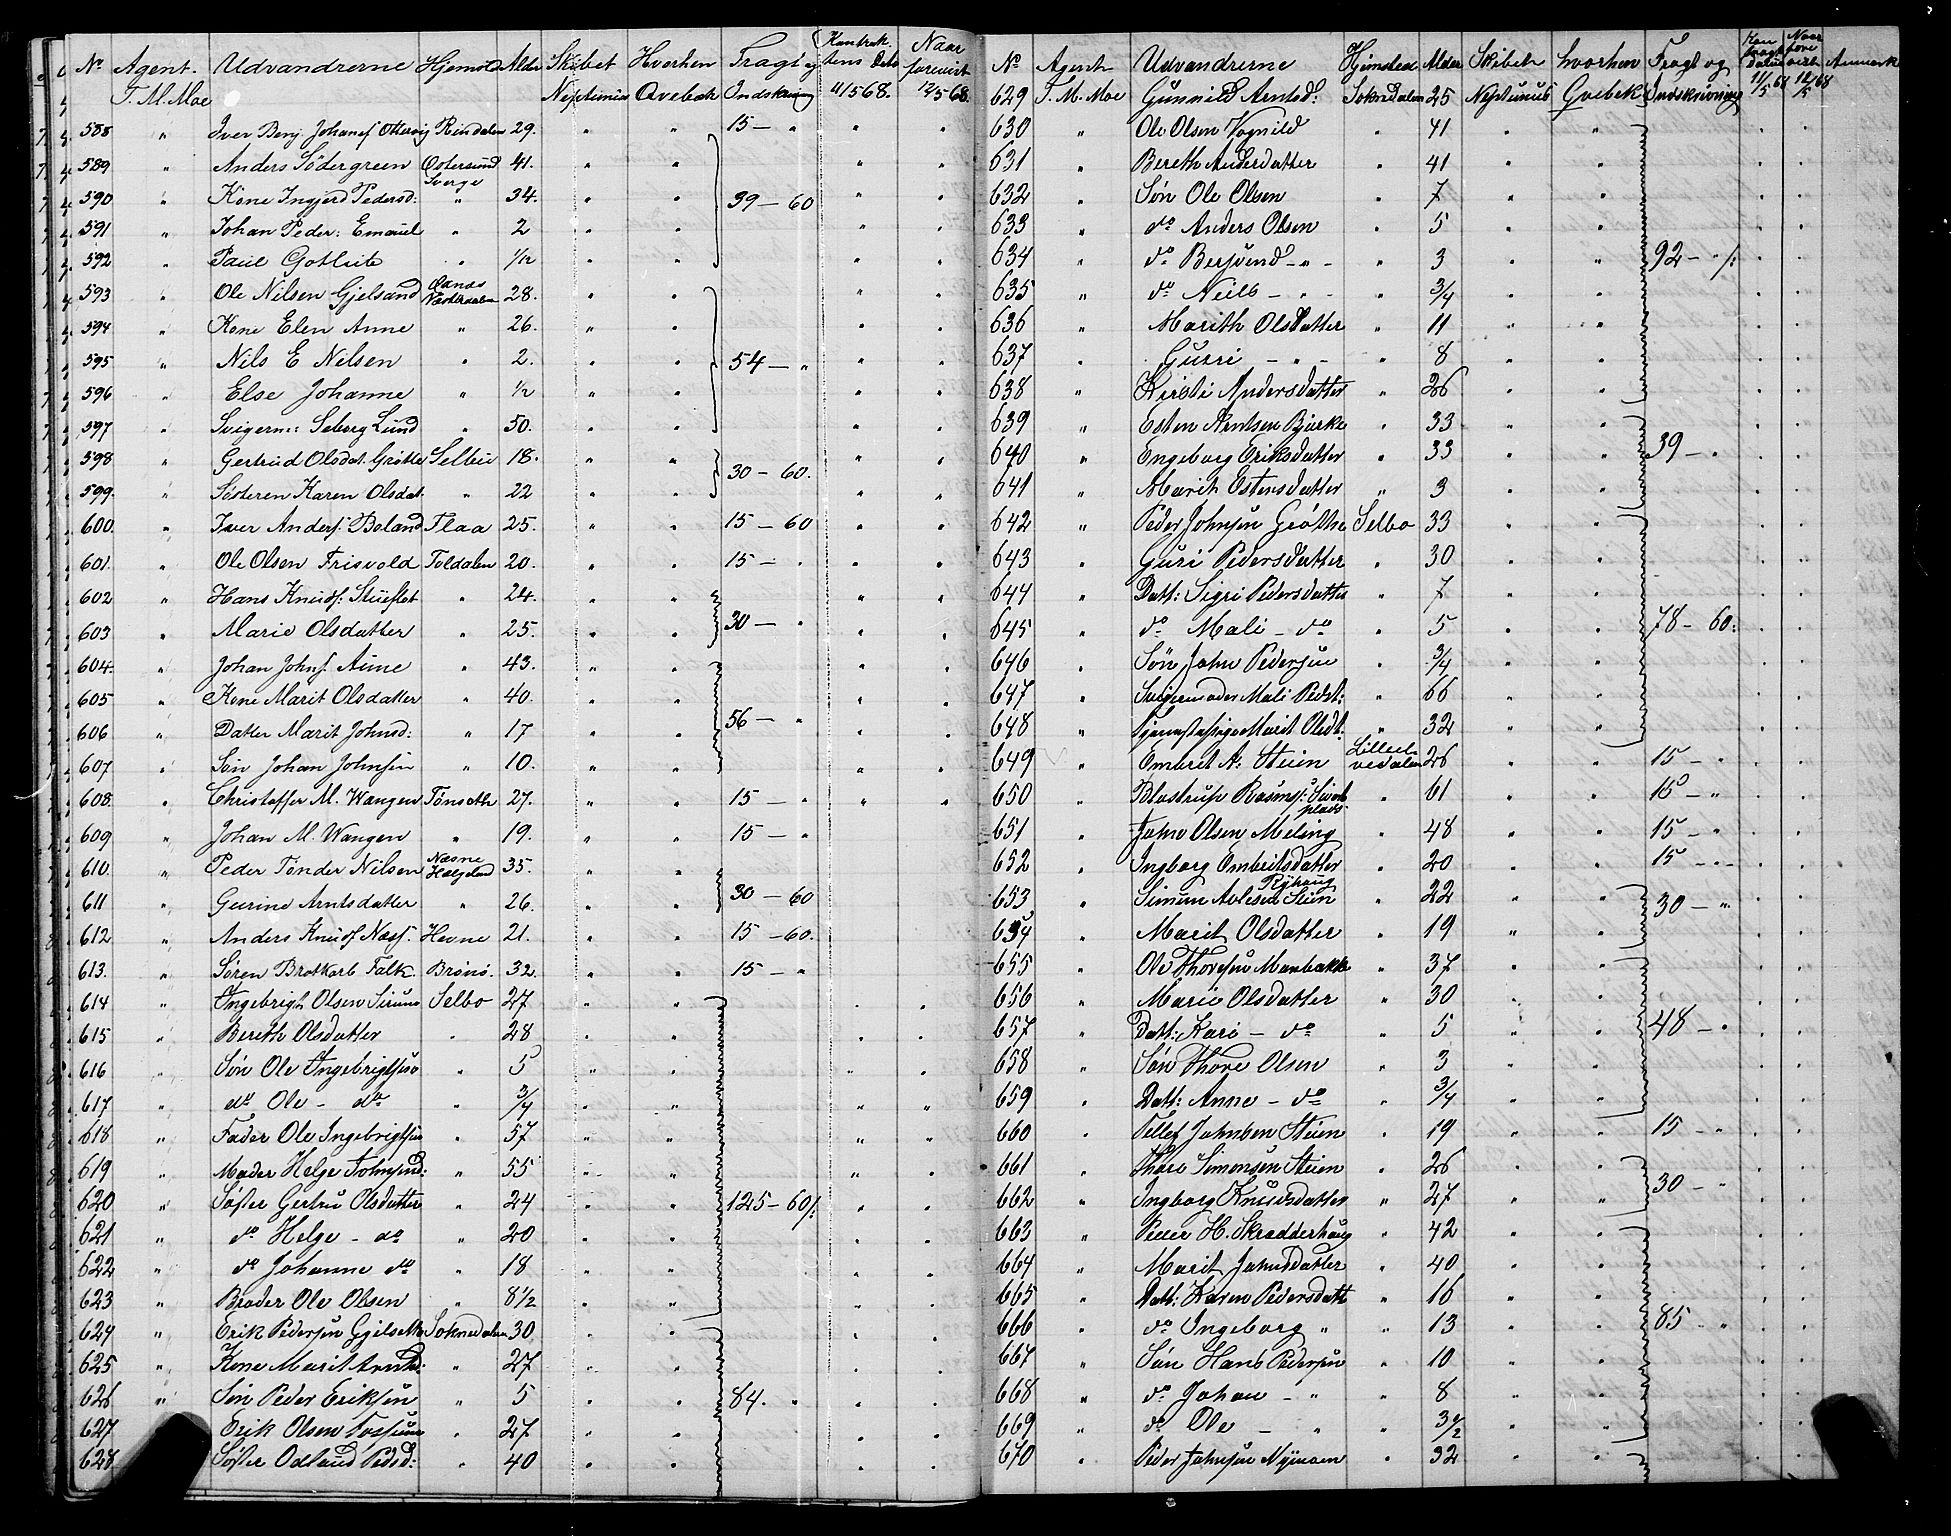 No Agent. Udvandrerne Hjemsted Alder Skibet Hvorhen Fragt og Indskrivning Kontraktens Dato Naar forevist
T. M. Moe Neptunus Qvebek 11/5 68. 12/5 68.
588 " Iver Benj. Johans. Rindalen 29. " " 15 — " " "
589 " Anders Södergreen Østersund Sverge 41. " " " "
590 " Kone Ingjerd Pedersd: " 34. " " 39 — 60 " "
591 " Johan Peder: Emanuel " 2 " " " "
592 " Paul " 1/2 " " " "
593 " Ole Nilsen Gjelsand 28. " " " "
594 " Kone Elen Anne " 26. " " " "
595 " Nils E Nilsen " 2. " " 54 — " " "
596 " Else Johanne " 1/2 " " " "
597 " Svigerm: Seberg Lund " 50. " " " "
598 " Gertrud Olsdat. Grøtte Selbu 18. " " 30 — 60. " "
599. " Søsteren Karen Olsdat. " 22 " " " "
600. " Iver Anders. Boland Flaa 25. " " 15 — 60 " "
601. " Ole Olsen Frisvold Toldalen 20. " " 15 — " " "
602 " Hans Knuds: " 24. " " " "
603 " Marie Olsdatter " 25. " " 30 — " " "
604. " Johan Johns. Aune " 43. " " " "
605 " Kone Marit Olsdatter " 40. " " " "
606 " Datter Marit Johnsd: " 17 " " 56 — " " "
607 " Søn Johan Johnsen " 10. " " " "
608. " Christoffer M. Wangen Tønseth 27. " " 15 — " " "
609 " Johan M. Wangen " 19. " " 15 — "
610. " Peder Tønder Nilsen Næsne Helgeland 35. " "
611 " Gurine Arntsdatter " 26. " " 30 — 60
612 " Anders Knuds. Næss. Hevne 21. " " 15 — 60.
613. " Søren Brotkorb Falk. Brønø. 32. " " 15 — "
614 " Ingebrigt Olsen Selbo 27 " " " "
615 " Bereth Olsdatter " 28 " " " "
616 " Søn Ole Ingebrigtsen 5 " " " "
617 " do Ole — do " 3/4 " " " "
618 " Fader Ole Ingebrigtsen " 57 " " " "
619 " Moder Helge Johnsd: " 55 " " " "
620 " Søster Gertru Olsdatter " 24 " " 125 — 60/: " "
621 " do Helge — do " 20 " " " "
622 " do Johanne do " 18 " " " "
623 " Broder Ole Olsen " 8 1/2 " " " "
624 " Erik Pedersen Soknedalen 30 " " " "
625 " Kone Marit Arntsd: " 27 " " " "
626 " Søn Peder Eriksen " 5 " " 84. " " "
627 Erik Olsen " 27 " " " "
628 Søster Pedsd: " 40 " " " "
No Agent Udvandrerne Hjemsted Alder Skibet hvorhen Fragt og Indskrivning Anmærk
629 T. M. Moe Gunnild Arntsd: Soknedalen 25 Neptunus Qvebek 11/5 68 12/5 68
630 " Ole Olsen Vognild " 41 " " " "
631 " Bereth Andersdatter " 41 " " " "
632 " Søn Ole Olsen " 7 " " " "
633 " do Anders Olsen " 5 " " " "
634 " do Bersvend — " — " 3 " " 92 — "/: " "
635 " do Neils — " — " 3/4 " " " "
636 " Marith Olsdatter " 11 " " " "
637 " Gurri — " — " 8 " " " "
638 " Kirsti Andersdatter " 26 " " " "
639 " Esten Arntsen Bjerke " 33 " " " "
640 " Engeborg Eriksdatter " 33 " " 39 — " " "
641 " Marit Estensdatter " 3 " " " "
642 " Peder Johnsen Grøthe Selbo 33 " " " "
643 " Guri Pedersdatter " 30 " " " "
644 " Datt: Sigri Pedersdatter " 7 " " " "
645 " do Mali — do " 5 " " 78 — 60: " "
646 " Søn John Pedersen " 3/4 " " " "
647 " Svigermoder Mali Pedst: " 66 " " " "
648 " Marit Olsdt: " 32 " " " "
649 " Embret A: Steien 26 " " 15 — " " "
650 " Rasms: " 61 " " 15 — " " "
651 " John Olsen Meling " 48 " " 15 — " " "
652 " Ingborg Embritsdatter " 20 " " 15 — " " "
653 " Simen Steien " 22 " " 30 — " " "
654 " Marit Olsdatter " 19 " " " "
655 " Ole Thoresen " 37 " " " "
656 " Marie Olsdatter " 30 " " " "
657 " Datt: Kari — do " 5 " " 48 — " " "
658 " Søn Thore Olsen " 3 " " " "
659 " Datt: Anne — do " 3/4 " " " "
660 " Tellef Johnsen Steien " 19 " " 15 — " " "
661 " Thore Simonsen Steien " 26 " " " "
662 " Ingborg Knudsdatter " 27 " " 30 — " " "
663 " Peder H. Skradderhaug " 42 " " " "
664 " Marit Johnsdatter " 40 " " " "
665 " Datt: Karen Pedersdatt " 16 " " " "
666 " do Ingeborg " " 13 " " 85 — " " "
667 " Søn Hans Pedersen " 10 " " " "
668 " do Johan — " " 8 " " " "
669 " do Ole — " " 3 1/2 " " " "
670 " Peder Johnsen " 32 " " " "